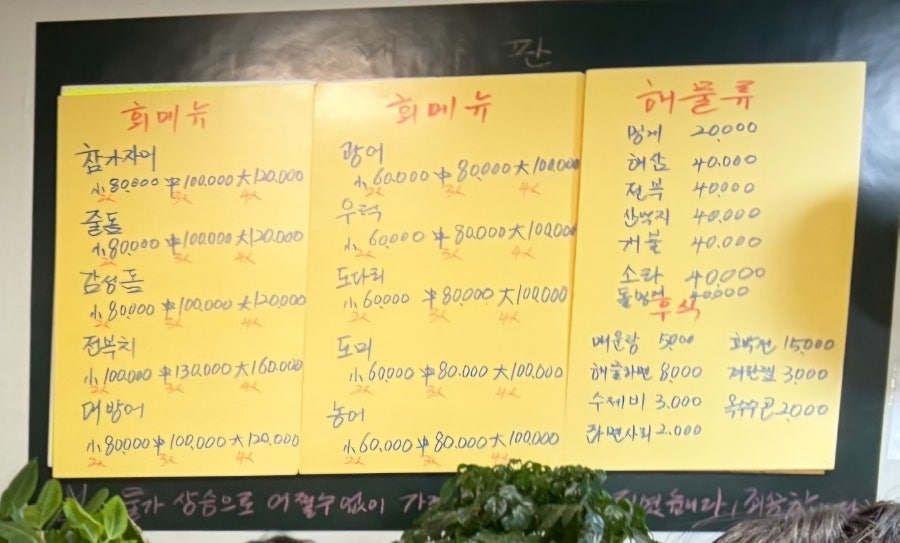 판
회메뉴
참가자미
小 80.000 中 100.000 大 120.000
2人 3人 4人
줄돔
小 80.000 中 100.000 大 120.000
2人 3人 4人
감성돔
小 80.000 中 100.000 大 120.000
2人 3人 4人
전부치
小 100.000 中 130.000 大 160.000
2人 3人 4人
대방어
小 80000 中 100.000 大 120.000
2人 3人 4人
회메뉴
광어
小 60.000 中 80.000 大 100.000
2人 3人 4人
우럭
小 60.000 中 80.000 大 100.000
2人 3人 4人
도다리
小 60000 中 80000 大 100.000
2人 3人 4人
도미
小 60.000 中 80.000 大 100.000
2人 3人 4人
농어
小 60.000 中 80.000 大 100.000
2人 3人 4人
해물류
멍게 20.000
해삼 40.000
전복 40000
산낙지 40.000
개불 40.000
소라 40.000
돌멍게 40.000
후식
매운탕 5.000
해물라면 8.000
수제비 3.000
라면사리 2.000
호박전 15.000
계란찜 3.000
옥수수콘 2000
물가 상승으로 어쩔수없이 가격